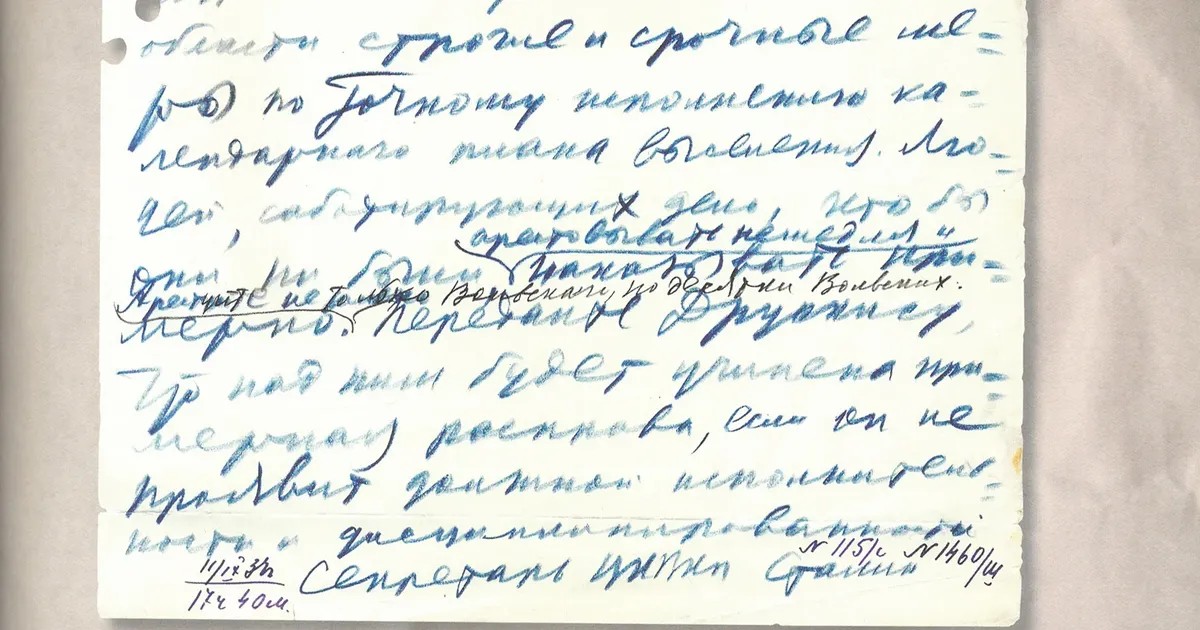 области строгие и срочные ме=
ры по точному исполнению ка=
лендарного плана выселения. Лю=
дей, саботирующих дело, кто бы
арестовывать немедля и
они ни были наказывать при=
Арестуйте не только Вольского, но десятки Вольских.
мерно. Передайте
что над ним будет учинена при=
мерная расправа, если он не
проявит должной исполнитель=
ности и дисциплинированности
Секретарь ЦК ВКП Сталин
№ 115/с № 1460/ш
17ч 40м.